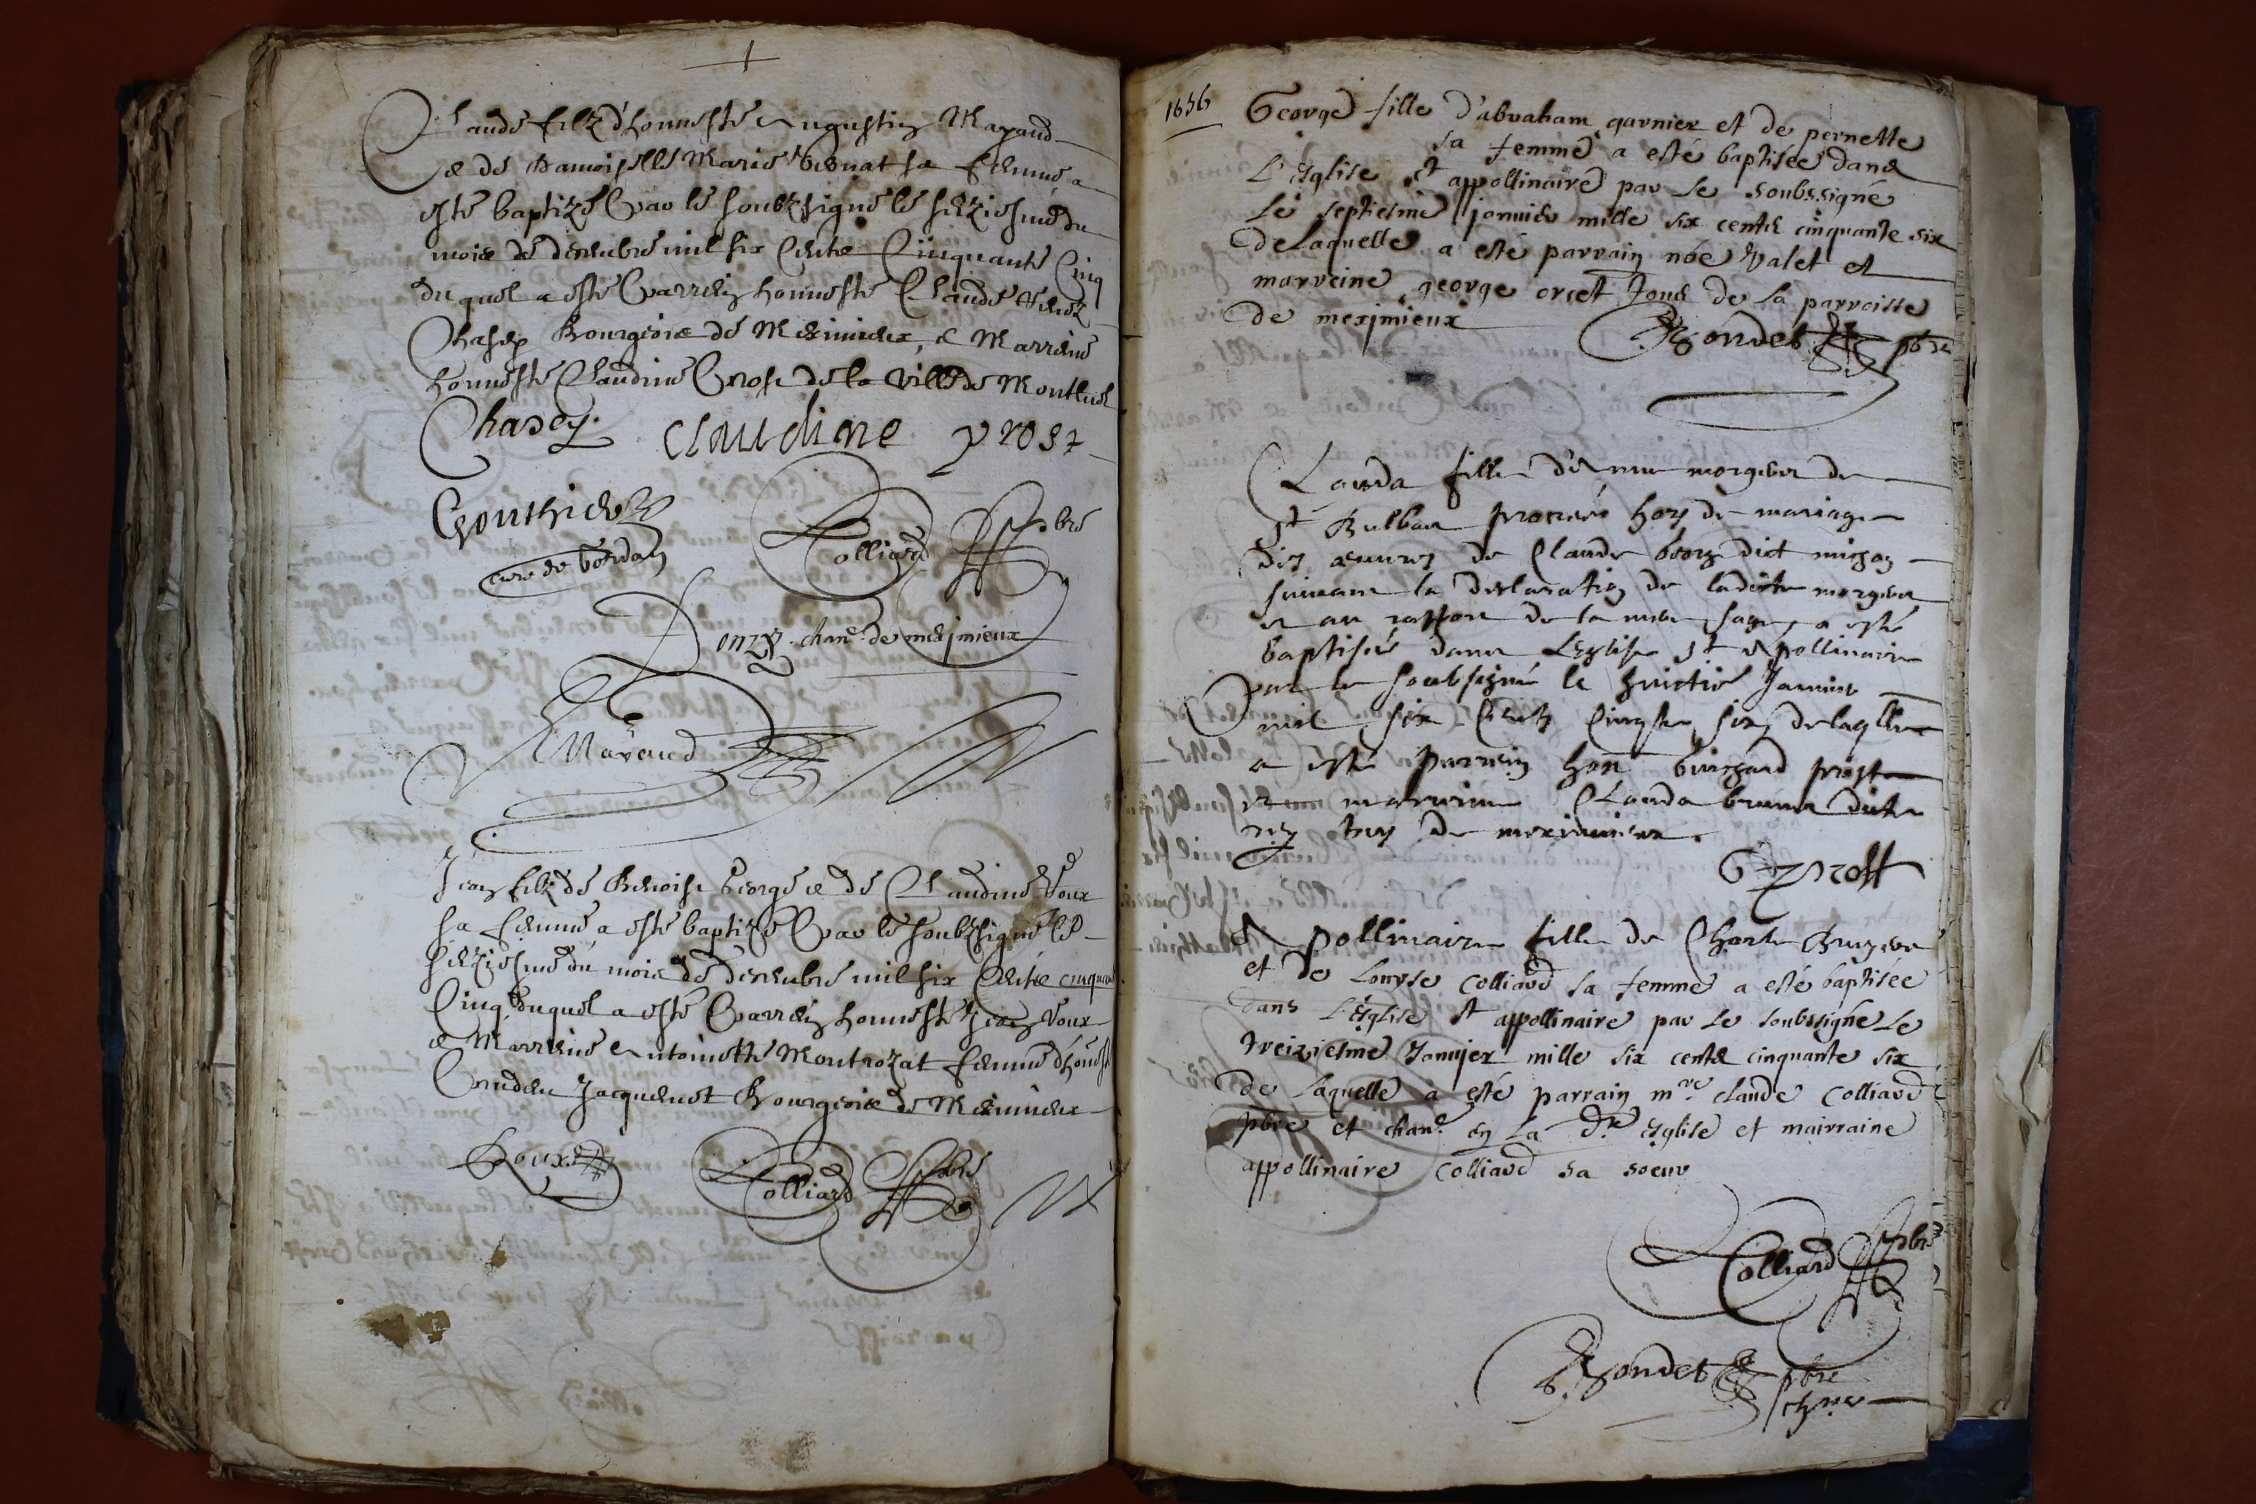 Claude filz d'honneste Augustin Mayaud
& de Damoiselle Marie sa femme a
esté baptizé par le soubzsigné le seziesme du
mois de decembre mil six Centz Cinquante Cinq
duquel a esté Parrein honneste Claude
Chasey Bourgeois de Meximieux, & Marreine
honneste Claudine Prost de la Ville de Montluel
Chasey. Claudine prost
Gouthier
curé de
Colliard pbre
Donzy chane. de meximieux
Mayaud
Jean filz de Benoist George & de Claudine Roux
sa femme a esté baptizé Par le soubzsigné le
seziesme du mois de decembre mil six Centz cinquante
Cinq, duquel a esté Parrein honneste Jean Roux
& Marreine Antoinette Montrozat femme d'honneste
Jacquemet Bourgeois de Meximieux
Roux
Colliard pbre
1656
George fille d'abraham garnier et de pernette
sa femme a esté baptisée dans
L'esglise st appollinaire par le soubssigné
Le septiesme janvier mille six cents cinquante six
de Laquelle a esté parrain noé Valet et
marreine george orset tous de la parroisse
de meximieux
Blondet pbre
Clauda fille d' morgier de
st procréé hors de mariage
des œuvres de Claude dict
suivant la declaration de ladicte morgier
et au rapport de la mere sage, a esté
baptisée dans L'esglise st Apollinaire
par le soubsigné le huictie Janvier
mil six Centz Cinqte six de laqlle
a esté parrein hon prost
et marreine Clauda dicte
tous de meximieux.
G prost
Apollinaire fille de Charle Bruyere
et de Louyse Colliard sa femme a esté baptisée
dans L'esglise st appollinaire par le soubssigné Le
treiziesme Janvier mille six cents cinquante six
de Laquelle a esté parrain mre. claude Colliard
pbre et chane. en La dte esglise et mairraine
appollinaire Colliard sa soeur
Colliard pbre
Blondet pbre